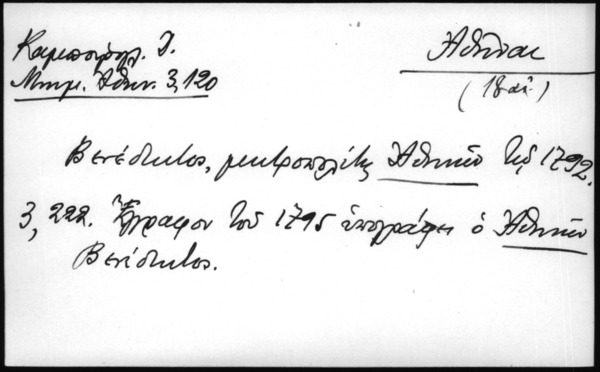 Καμπούρογλ. Δ.
Μνημ. Ἀθην. 3,120
Ἀθῆναι
(18 αἰ.)
Βενέδικτος, μητροπολίτης Ἀθηνῶν τῷ 1792.
3, 222. Ἔγγραφον τοῦ 1795 ὑπογράφει ὁ Ἀθηνῶν
Βενέδικτος.